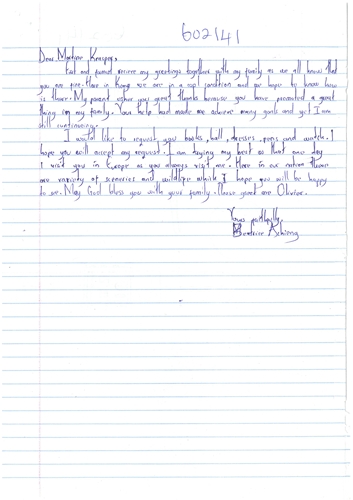 602141
Dear Martine Kempers,
First and foremost receive my greetings together with my family as we all know that
you are fine. Here in Kenya we are in a cool condition and we hope to know how
is there. My parent usher you great thanks because you have promoted a great
thing in my family. Your help had made me achieve many goals and yet I am
still continuing.
I would like to request you books, ball, dresses, pens and watch. I
hope you will accept my request. I am trying my best so that one day
I visit you in Europe as you always visit me. Here in our nation there
are variety of sceneries and wildlife which I hope you will be happy
to see. May God bless you with your family. Please greet me
Yours faithfully,
Beatrice Achieng